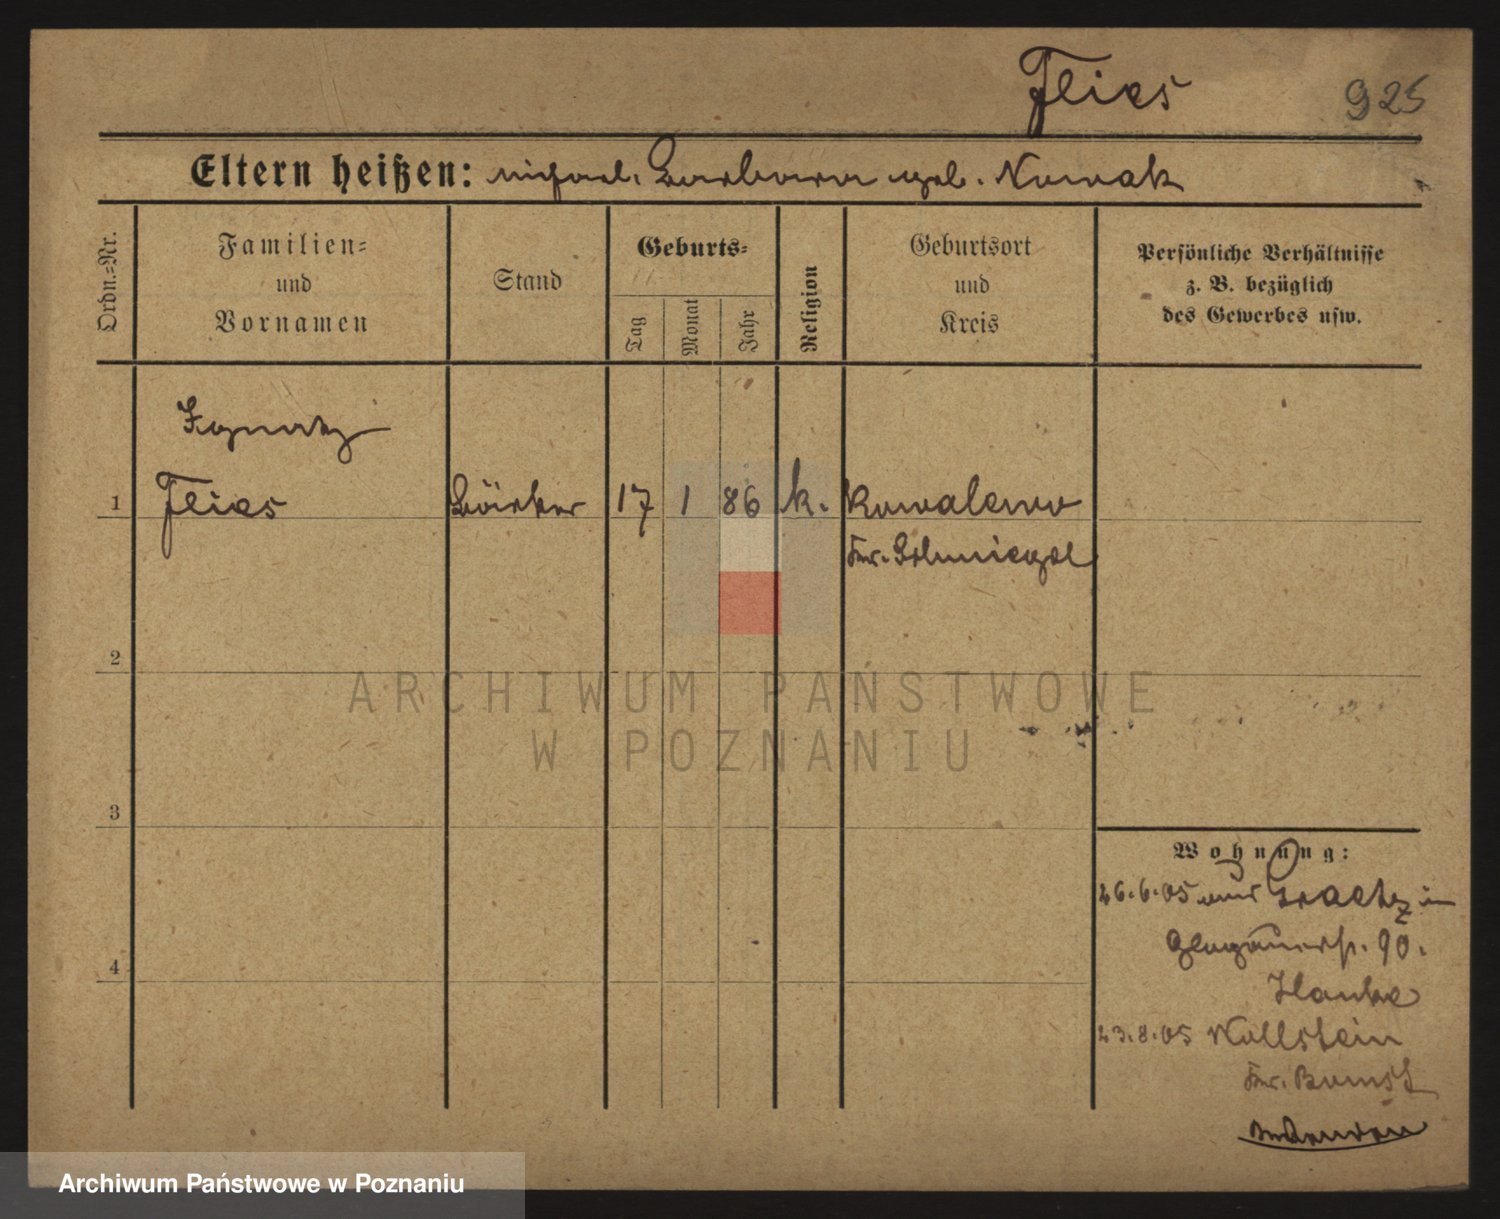 Flies 925
Eltern heißen: Michael. Barbara geb. Nowak
Ordn.=Nr.
Familien=
und
Vornamen
Stand
Geburts=
Tag
Monat
Jahr
Religion
Geburtsort
und
Kreis
Persönliche Verhältnisse
z. B. bezüglich
des Gewerbes usw.
Ignatz
1 Flies Bäcker 17 1 86 k. Kowalewo
Kr. Schmiegel
2
3
4
Wohnung:
26.6.05 aus Graetz in
Glogauerstr. 90.
Hanke
23.8.05 Wollstein
Kr. Bomst
ARCHIWUM PAŃSTWOWE
W POZNANIU
Archiwum Państwowe w Poznaniu